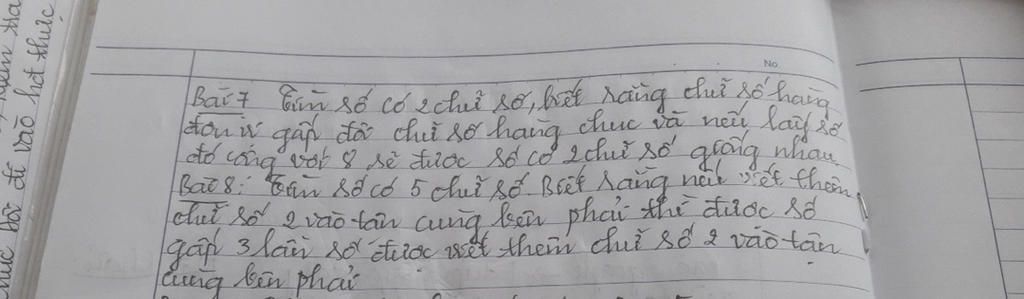 No
Bài 7 Tìm số có 2 chữ số, biết rằng chữ số hàng
đơn vị gấp đôi chữ số hàng chục và nếu lấy số
đó cộng với 8 sẽ được số có 2 chữ số giống nhau
Bài 8: Tìm số có 5 chữ số. Biết rằng nếu viết thêm
chữ số 2 vào tận cùng bên phải thì được số
gấp 3 lần số được viết thêm chữ số 2 vào tận
cùng bên phải